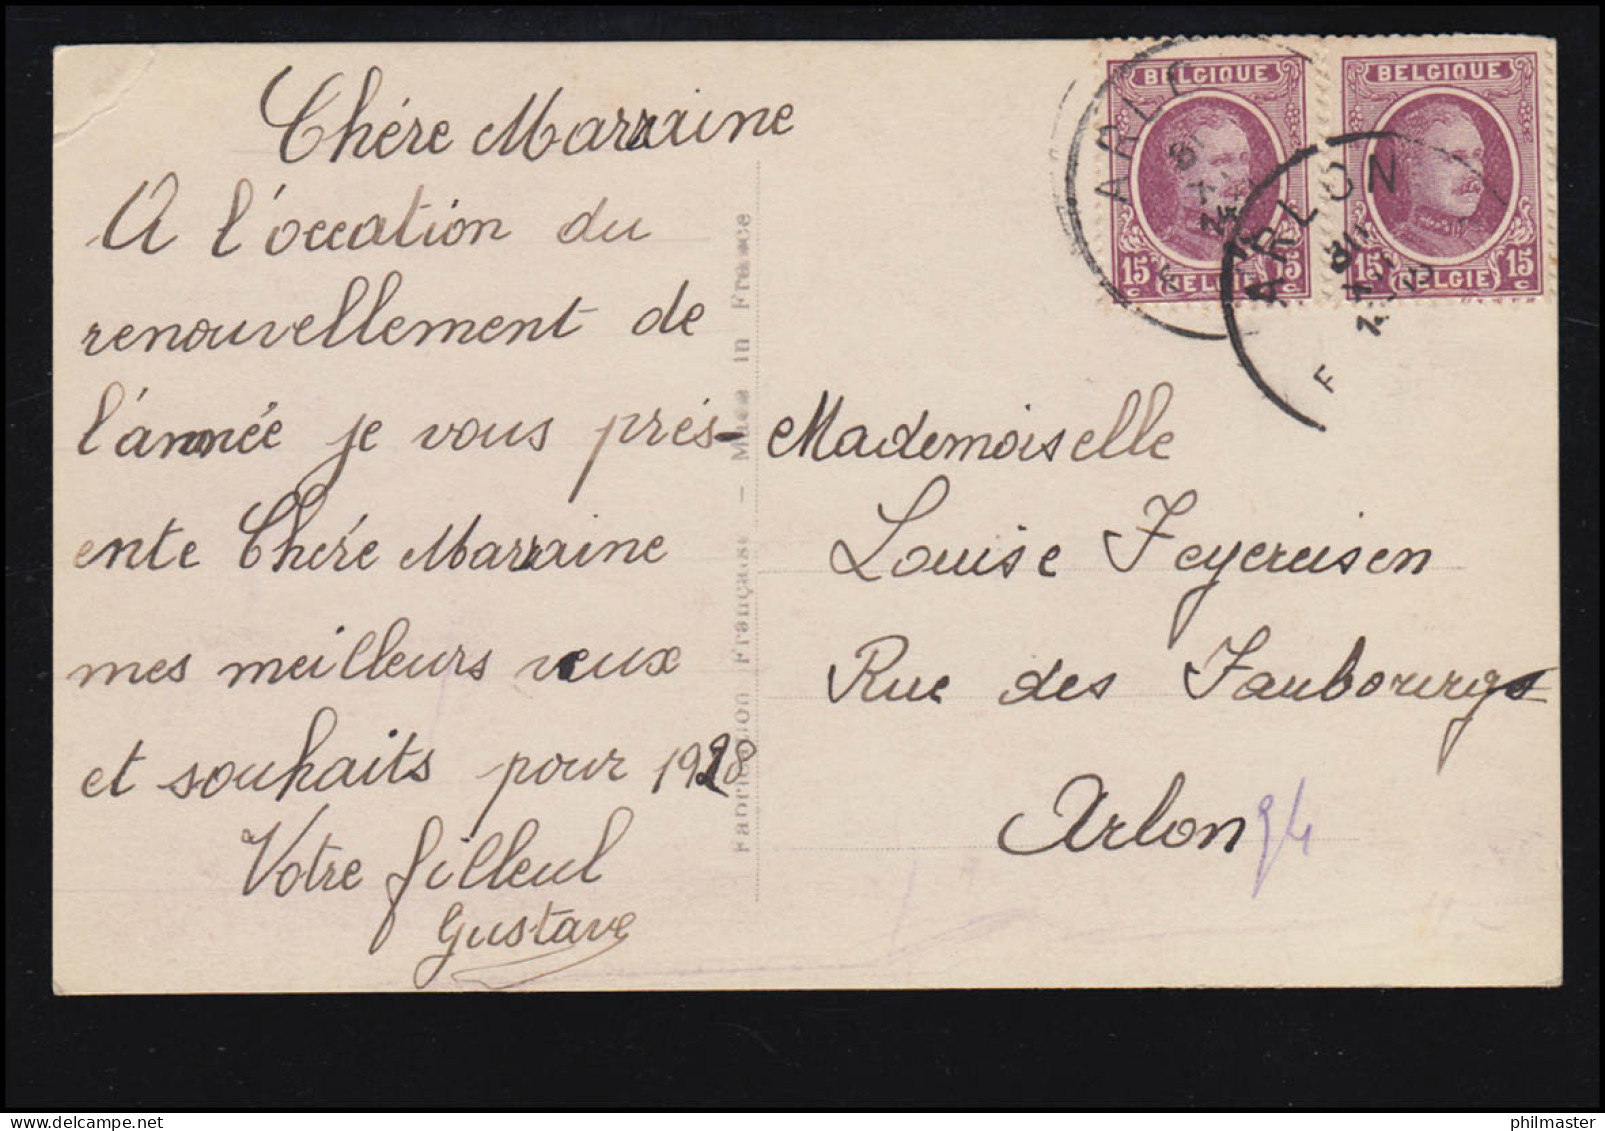 Chére Marraine
A l'occation du
renouvellement de
l'année je vous prés-
ente Chére Marraine
mes meilleurs veux
et souhaits pour 1928
Votre filleul
Gustave
Fabrication Française - Made in France
BELGIQUE
15 c 15 c
BELGIE
BELGIQUE
15 c 15 c
BELGIE
ARLON
F
Mademoiselle
Louise Feyereisen
Rue des Faubourgs
Arlon
94
philmaster